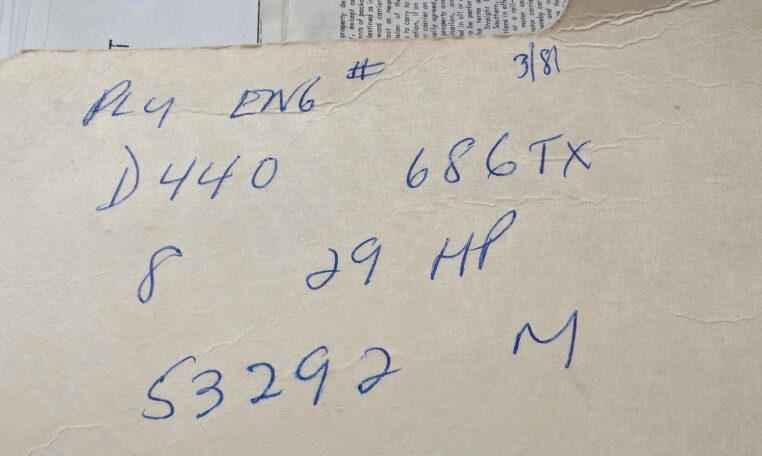 PLY ENG # 3/81
D440 686TX
8 29 HP
53292 M